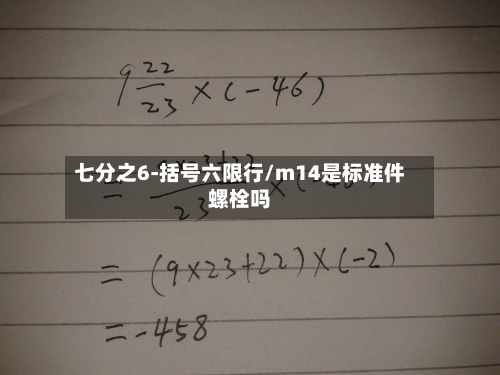 9 22/23 × (-46)
七分之6-括号六限行/m14是标准件
螺栓吗
= (9×23+22)×(-2)
= -458